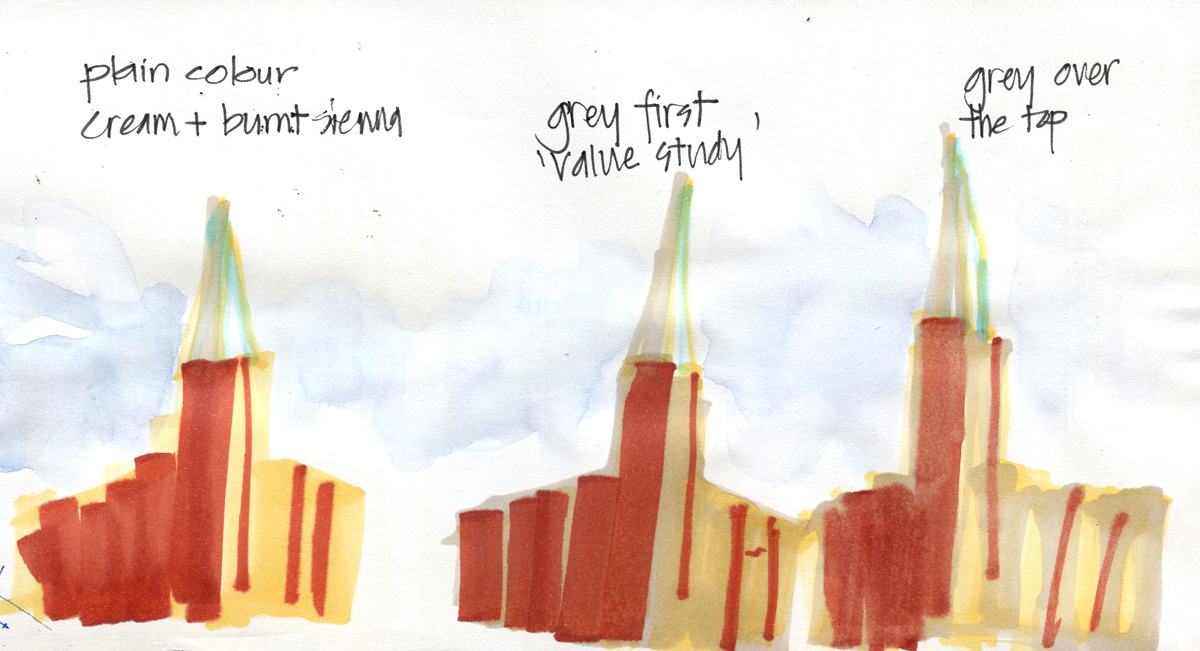 plain colour
cream + burnt sienna
grey first
'value study'
grey over
the top